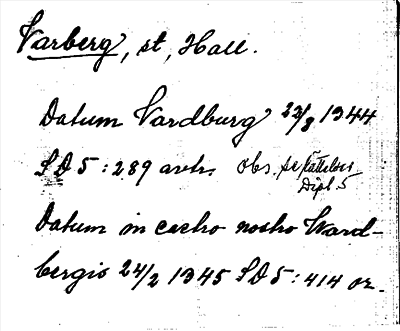 Varberg, st, Hall.
Datum Vardburg 22/8 1344
SD 5: 289 avtr. obs. se rättelser
Dipl 5
Datum in castro nostro Ward-
bergis 24/2 1345 SD 5: 414 or.